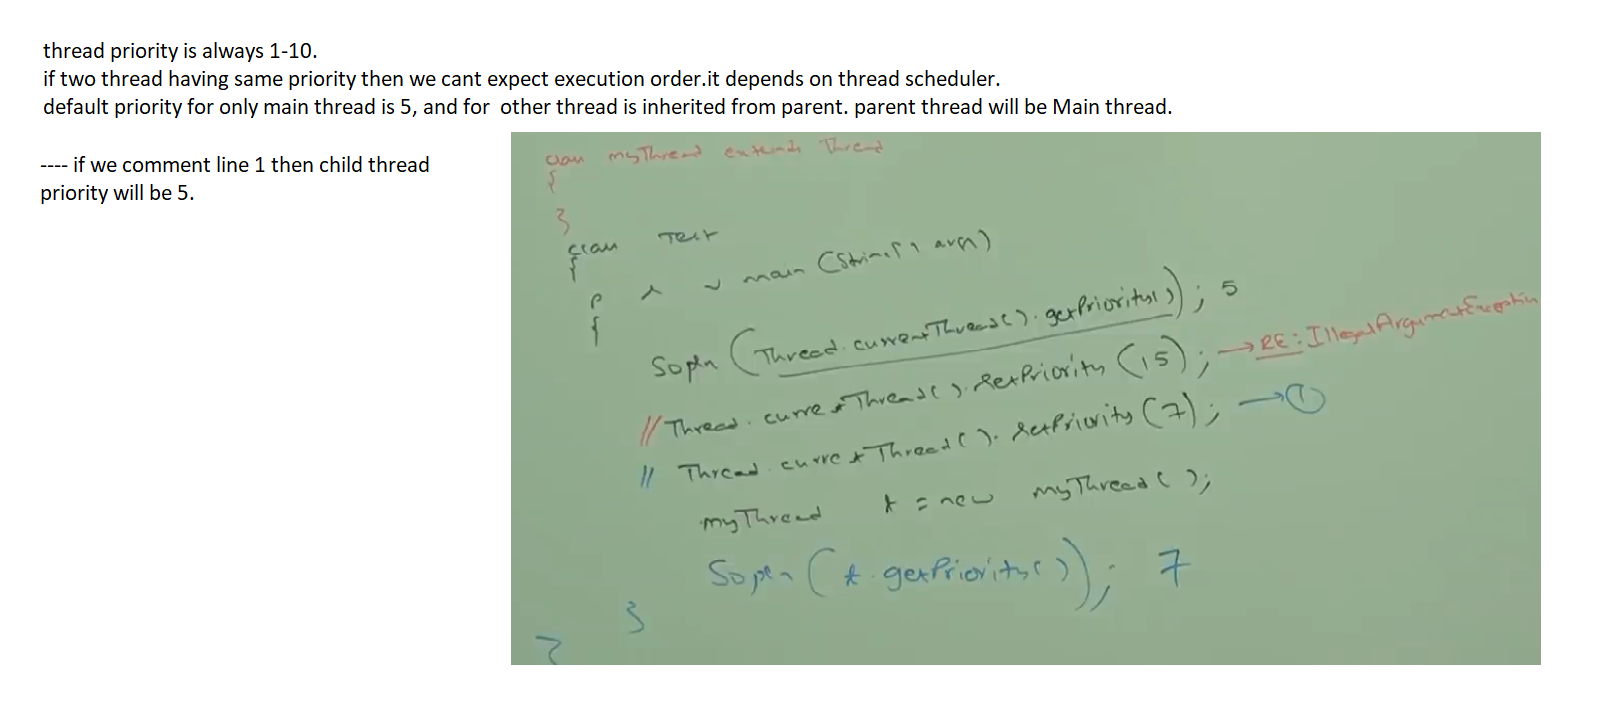 thread priority is always 1-10.
if two thread having same priority then we cant expect execution order.it depends on thread scheduler.
default priority for only main thread is 5, and for other thread is inherited from parent. parent thread will be Main thread.
---- if we comment line 1 then child thread
priority will be 5.
class myThread extends Thread
{
}
class Test
{
P s v main (String[] args)
{
Sopln (Thread.currentThread().getPriority()); 5
// Thread.currentThread().setPriority (15); → RE: IllegalArgumentException
// Thread.currentThread().setPriority (7); → 1
myThread t = new myThread();
Sopln (t.getPriority()); 7
}
}